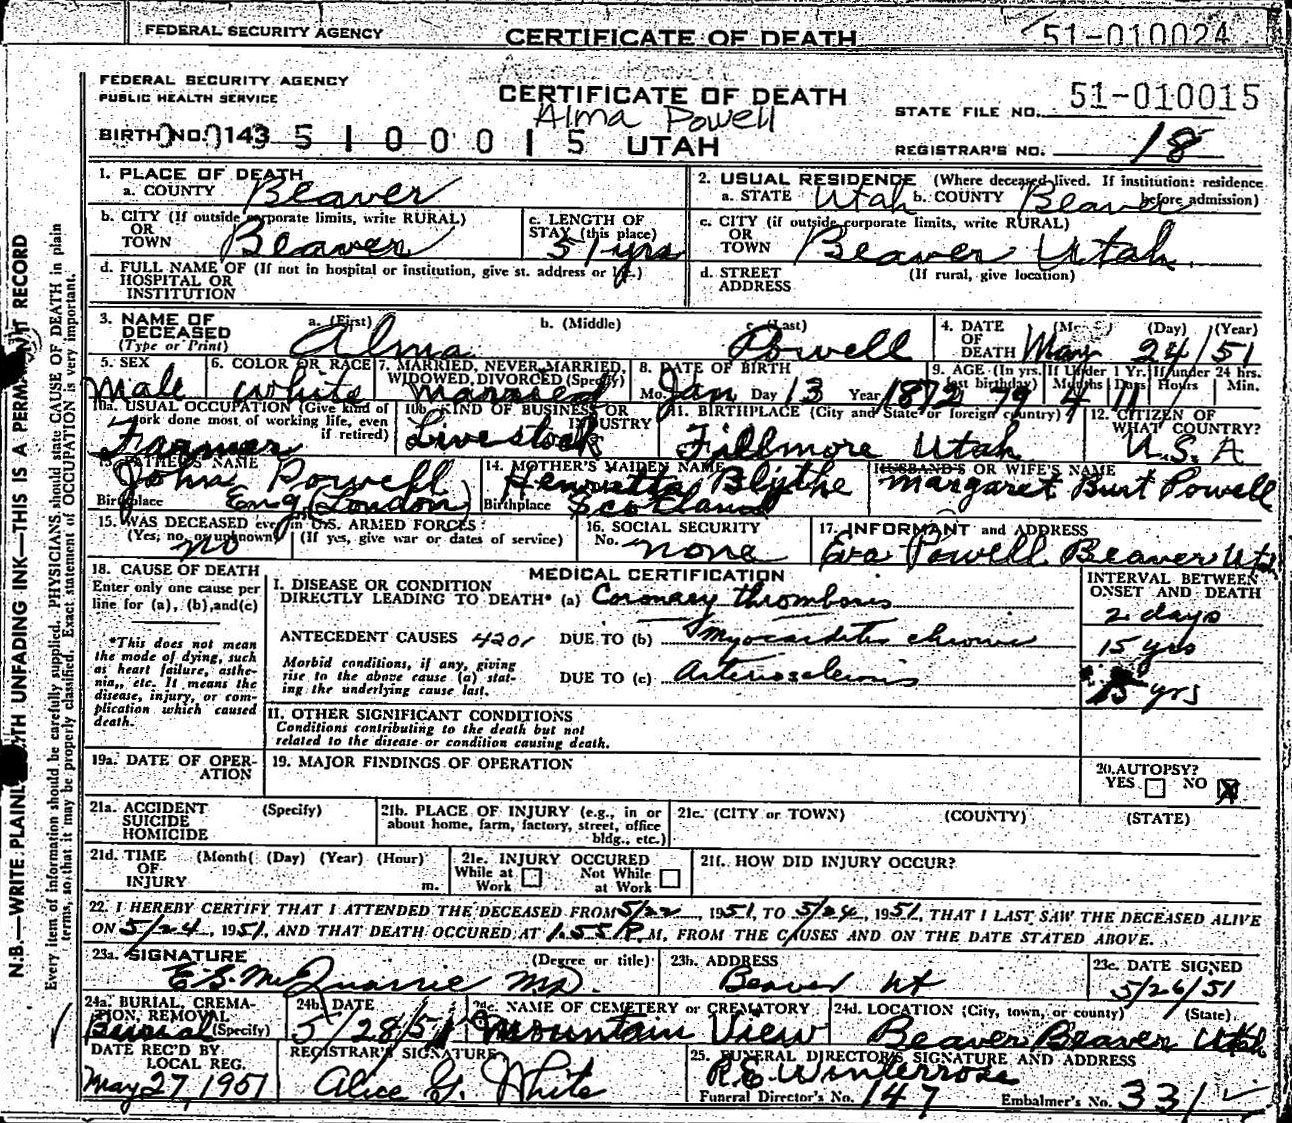 FEDERAL SECURITY AGENCY CERTIFICATE OF DEATH 51-010024
FEDERAL SECURITY AGENCY
PUBLIC HEALTH SERVICE
CERTIFICATE OF DEATH
Alma Powell
STATE FILE NO. 51-010015
BIRTH NO. 0143 5 1 0 0 0 1 5 UTAH
REGISTRAR'S NO. 18
1. PLACE OF DEATH
a. COUNTY Beaver
2. USUAL RESIDENCE (Where deceased lived. If institution: residence before admission)
a. STATE Utah b. COUNTY Beaver
b. CITY (If outside corporate limits, write RURAL)
OR
TOWN Beaver
c. LENGTH OF STAY (this place)
51 yrs
c. CITY (if outside corporate limits, write RURAL)
OR
TOWN Beaver Utah.
d. FULL NAME OF (If not in hospital or institution, give st. address or
HOSPITAL OR
INSTITUTION
d. STREET ADDRESS (If rural, give location)
3. NAME OF DECEASED
(Type or Print)
a. (First) b. (Middle) c. (Last)
Alma Powell
4. DATE OF DEATH (Day) (Year)
May 24/51
5. SEX
Male
6. COLOR OR RACE
white
7. MARRIED, NEVER MARRIED, WIDOWED, DIVORCED (Specify)
married
8. DATE OF BIRTH
Mo. Jan Day 13 Year 1872
9. AGE (In yrs. last birthday) If Under 1 Yr. If under 24 hrs.
Months Days Hours Min.
79 4 11
10a. USUAL OCCUPATION (Give kind of work done most of working life, even if retired)
Farmer
10b. KIND OF BUSINESS OR INDUSTRY
Livestock
11. BIRTHPLACE (City and State or foreign country)
Fillmore Utah
12. CITIZEN OF WHAT COUNTRY?
U.S.A
13. FATHER'S NAME
John Powell
Birthplace Eng (London)
14. MOTHER'S MAIDEN NAME
Henrietta Blythe
Birthplace Scotland
HUSBAND'S OR WIFE'S NAME
Margaret Burt Powell
15. WAS DECEASED ever in U.S. ARMED FORCES?
(Yes, no, or unknown) (If yes, give war or dates of service)
no
16. SOCIAL SECURITY
No. none
17. INFORMANT and ADDRESS
Eva Powell Beaver Uta
18. CAUSE OF DEATH
Enter only one cause per line for (a), (b), and (c)
*This does not mean the mode of dying, such as heart failure, asthenia, etc. It means the disease, injury, or complication which caused death.
MEDICAL CERTIFICATION
INTERVAL BETWEEN ONSET AND DEATH
I. DISEASE OR CONDITION
DIRECTLY LEADING TO DEATH* (a) Coronary thrombosis 2 days
ANTECEDENT CAUSES 4201 DUE TO (b) myocarditis chronic 15 yrs
Morbid conditions, if any, giving rise to the above cause (a) stating the underlying cause last.
DUE TO (c) Arteriosclerosis 15 yrs
II. OTHER SIGNIFICANT CONDITIONS
Conditions contributing to the death but not
related to the disease or condition causing death.
19a. DATE OF OPERATION
19. MAJOR FINDINGS OF OPERATION
20. AUTOPSY?
YES NO X
21a. ACCIDENT (Specify)
SUICIDE
HOMICIDE
21b. PLACE OF INJURY (e.g., in or about home, farm, factory, street, office bldg., etc.)
21c. (CITY or TOWN) (COUNTY) (STATE)
21d. TIME OF INJURY (Month) (Day) (Year) (Hour) m.
21e. INJURY OCCURED
While at Work Not While at Work
21f. HOW DID INJURY OCCUR?
22. I HEREBY CERTIFY THAT I ATTENDED THE DECEASED FROM 5/22, 1951, TO 5/24, 1951, THAT I LAST SAW THE DECEASED ALIVE
ON 5/24, 1951, AND THAT DEATH OCCURED AT 1.55 P. M, FROM THE CAUSES AND ON THE DATE STATED ABOVE.
23a. SIGNATURE (Degree or title)
E S McQuarrie MD.
23b. ADDRESS
Beaver Ut
23c. DATE SIGNED
5/26/51
24a. BURIAL, CREMATION, REMOVAL (Specify)
Burial
24b. DATE
5/28/51
24c. NAME OF CEMETERY or CREMATORY
Mountain View
24d. LOCATION (City, town, or county) (State)
Beaver Beaver Utah
DATE REC'D BY LOCAL REG.
May 27, 1951
REGISTRAR'S SIGNATURE
Alice G. White
25. FUNERAL DIRECTOR'S SIGNATURE AND ADDRESS
R.E. Winterrose
Funeral Director's No. 147 Embalmer's No. 331
N.B.—WRITE PLAINLY WITH UNFADING INK—THIS IS A PERMANENT RECORD
Every item of information should be carefully supplied. PHYSICIANS should state CAUSE OF DEATH in plain
terms, so that it may be properly classified. Exact statement of OCCUPATION is very important.